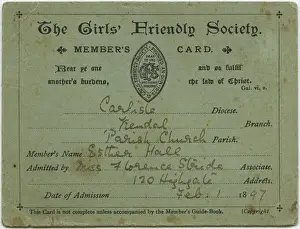 The Girls' Friendly Society.
MEMBER'S CARD.
Bear ye one another's burdens,
and so fulfil the law of Christ.
Gal. vi. 2.
Carlisle Diocese.
Kendal Branch.
Parish Church Parish.
Member's Name Esther Hall
Admitted by Miss Florence Stride Associate.
120 Highgate Address.
Date of Admission Feb. 1 1897
This Card is not complete unless accompanied by the Member's Guide-Book. Copyright.